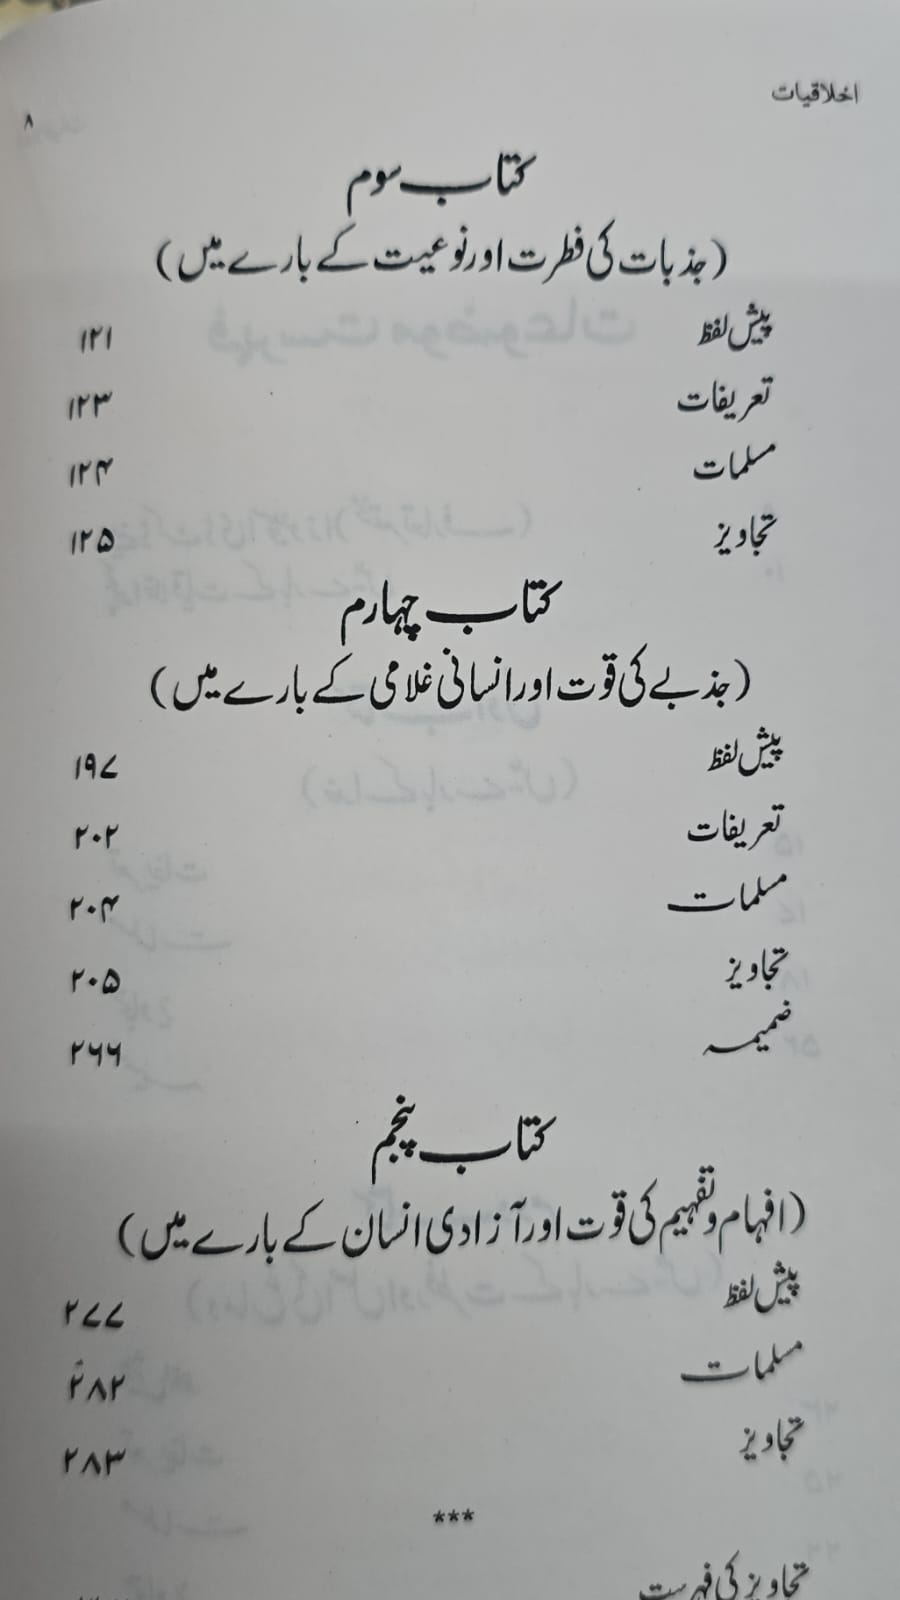 اخلاقیات ۸
کتاب سوم
(جذبات کی فطرت اور نوعیت کے بارے میں)
پیش لفظ ۱۲۱
تعریفات ۱۲۳
مسلمات ۱۲۴
تجاویز ۱۲۵
کتاب چہارم
(جذبے کی قوت اور انسانی غلامی کے بارے میں)
پیش لفظ ۱۹۷
تعریفات ۲۰۲
مسلمات ۲۰۴
تجاویز ۲۰۵
ضمیمہ ۲۶۶
کتاب پنجم
(افہام و تفہیم کی قوت اور آزادی انسان کے بارے میں)
پیش لفظ ۲۷۷
مسلمات ۲۸۲
تجاویز ۲۸۳
***
تجاویز کی فہرست